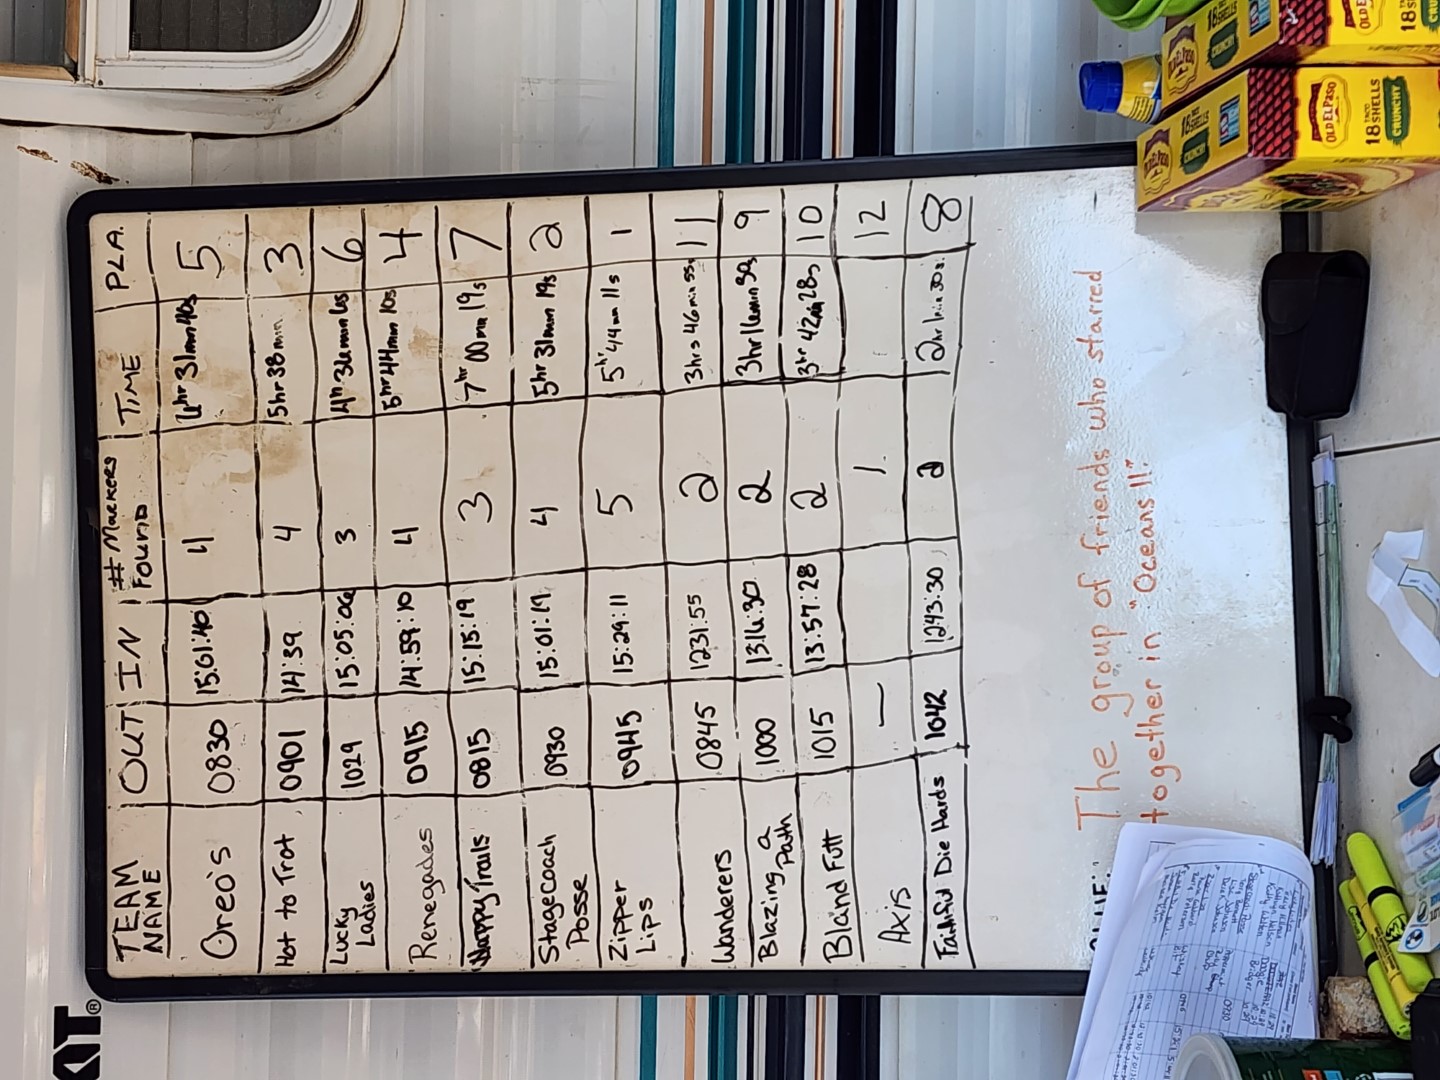 TEAM NAME OUT IN # Markers Found TIME PLA.
Oreo's 0830 15:01:40 4 6hr 31min 40s 5
Hot to Trot 0901 14:39 4 5hr 38min 3
Lucky Ladies 1029 15:05:06 3 4hr 36min 6s 6
Renegades 0915 14:59:10 4 5hr 44min 10s 4
Happy Trails 0815 15:15:19 3 7hr 00min 19s 7
Stagecoach Posse 0930 15:01:19 4 5hr 31min 19s 2
Zipper Lips 0945 15:29:11 5 5hr 44min 11s 1
Wanderers 0845 1231:55 2 3hrs 46min 55s 11
Blazing a Path 1000 1316:30 2 3hr 16min 30s 9
Blaind Futt 1015 13:57:28 2 3hr 42min 28s 10
Axis — 1 12
Faithful Die Hards 1042 1243:30 2 2hr 1min 30s. 8
The group of friends who starred
together in "Oceans 11".
OLD EL PASO
18 TACO SHELLS
CRUNCHY
OLD EL PASO
18 TACO SHELLS
CRUNCHY